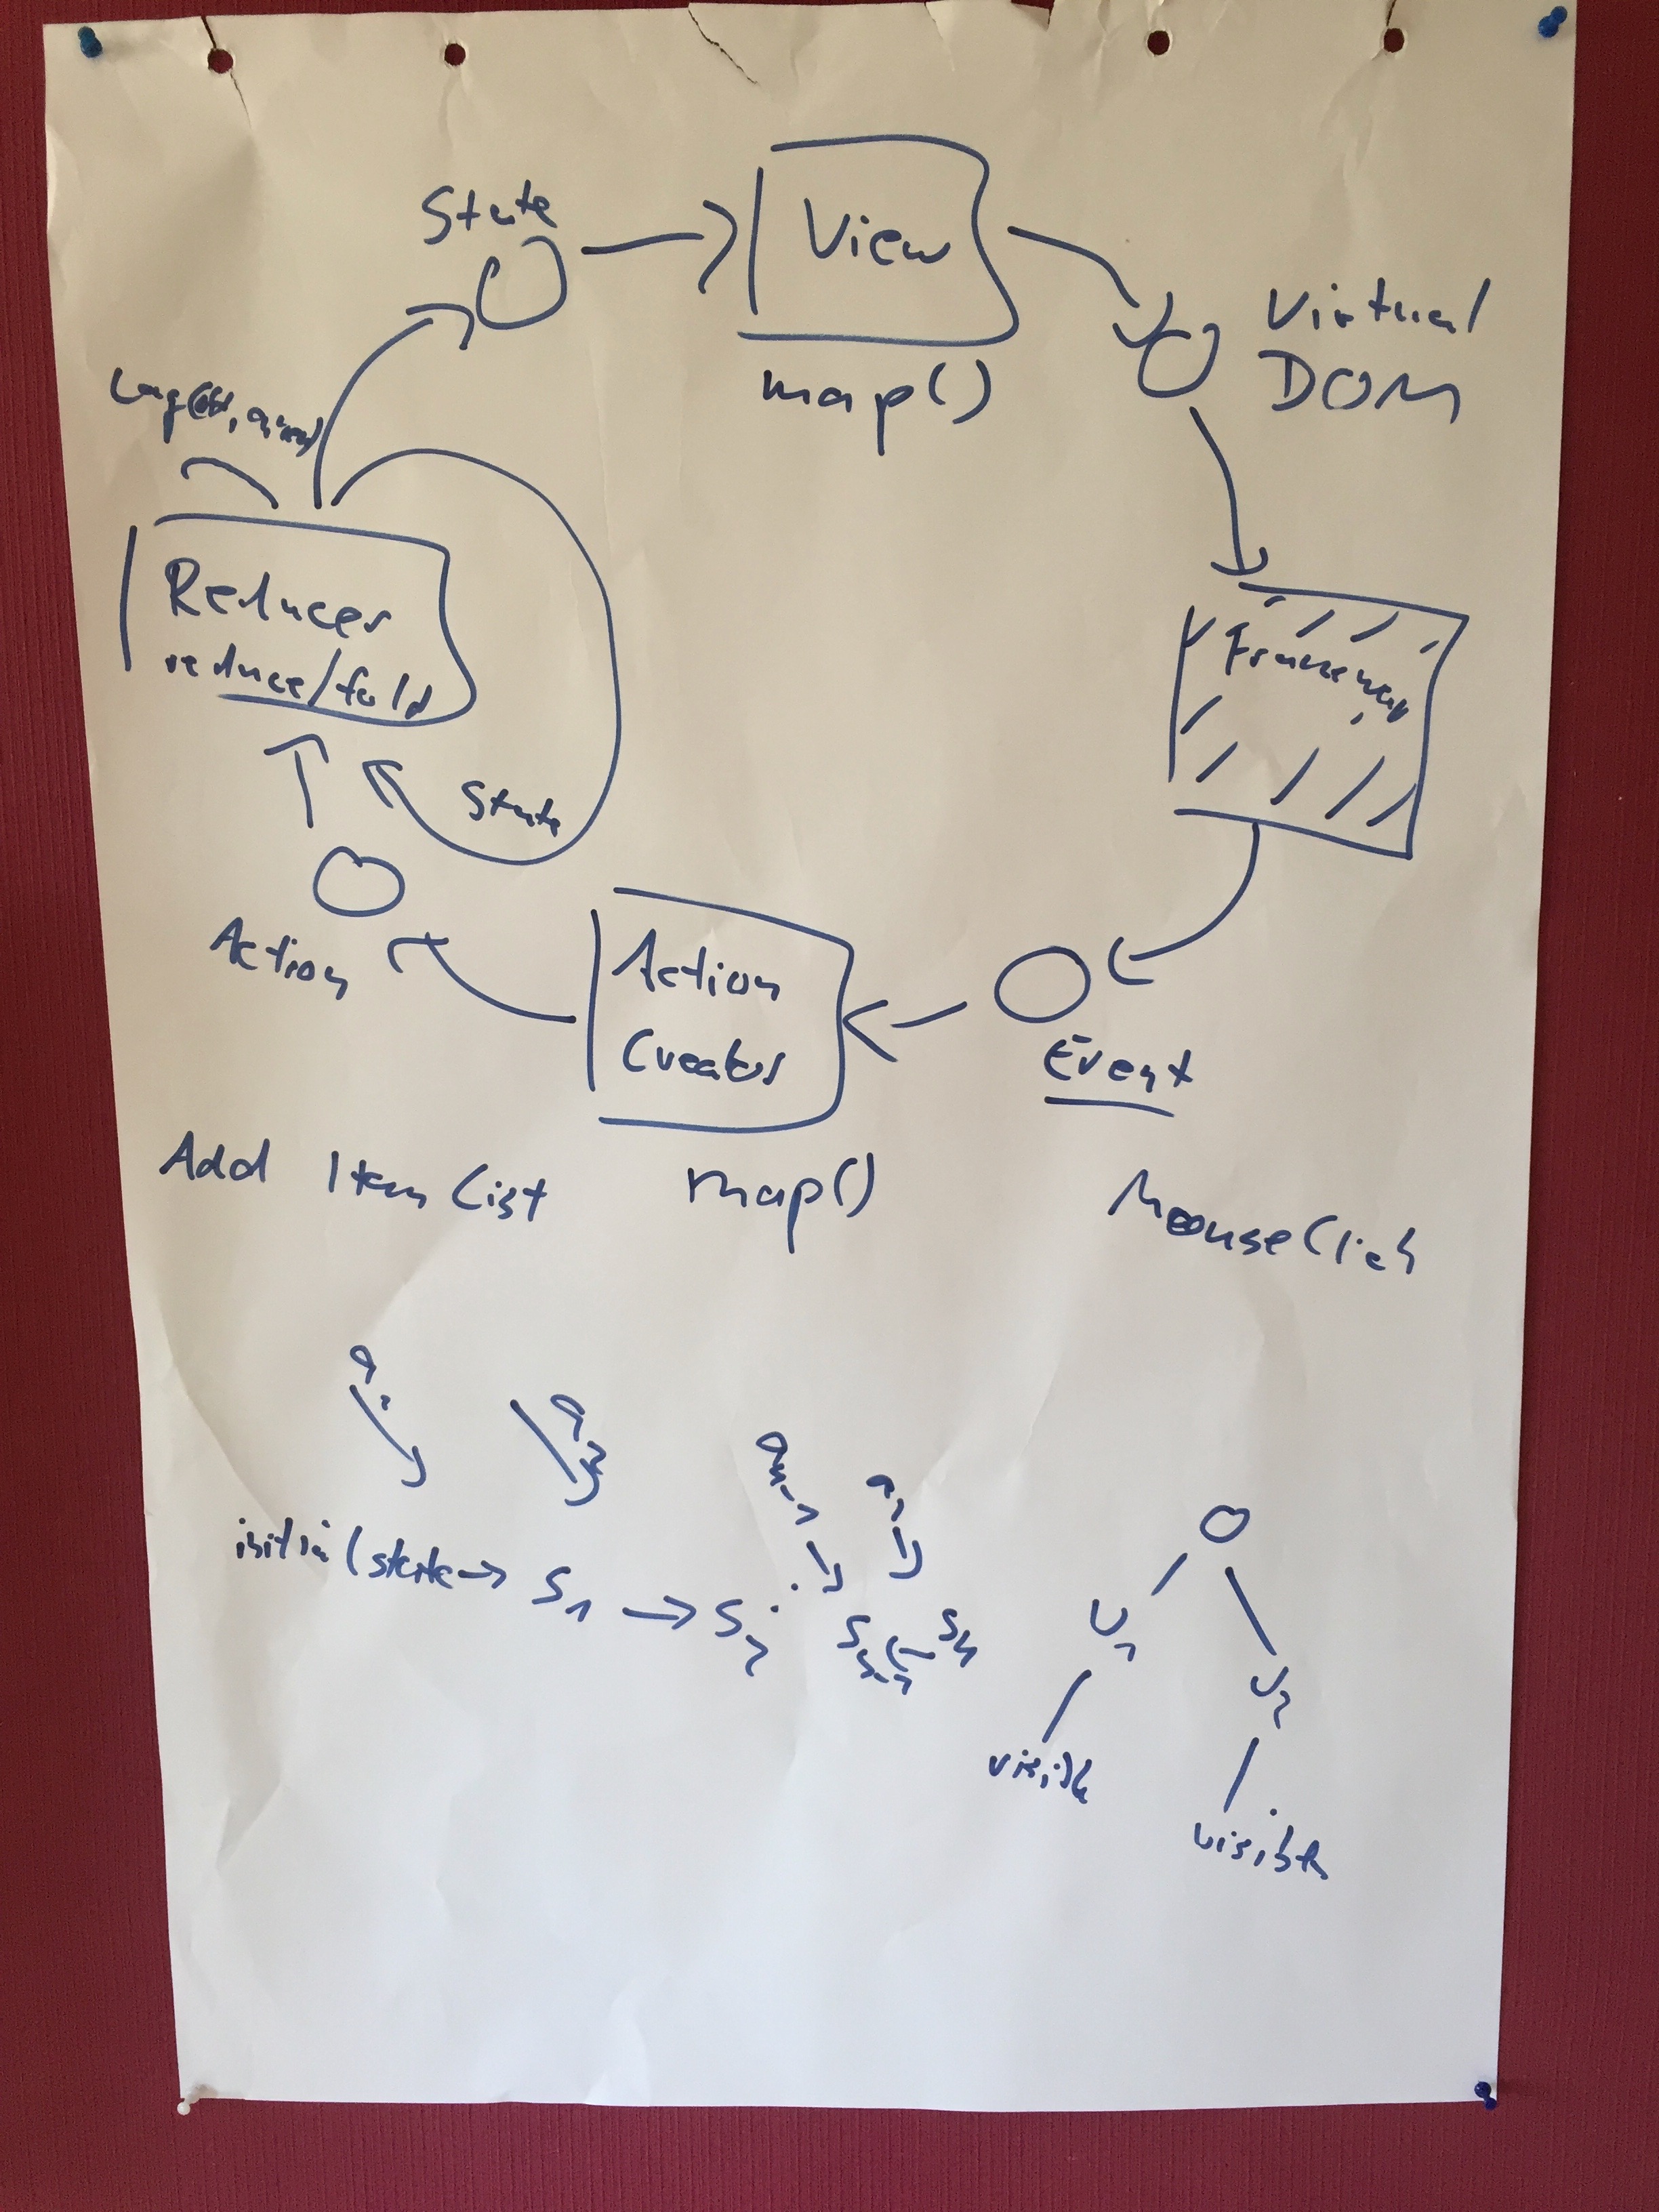 State
View
Virtual
DOM
map()
Reducer
reduce/fold
State
Action
Action
Creator
Event
Add Item List
map()
MouseClick
a1
a2
an-1
an
initial state → S1 → S2
Sn-1
Sn
U1
U2
visible
visible